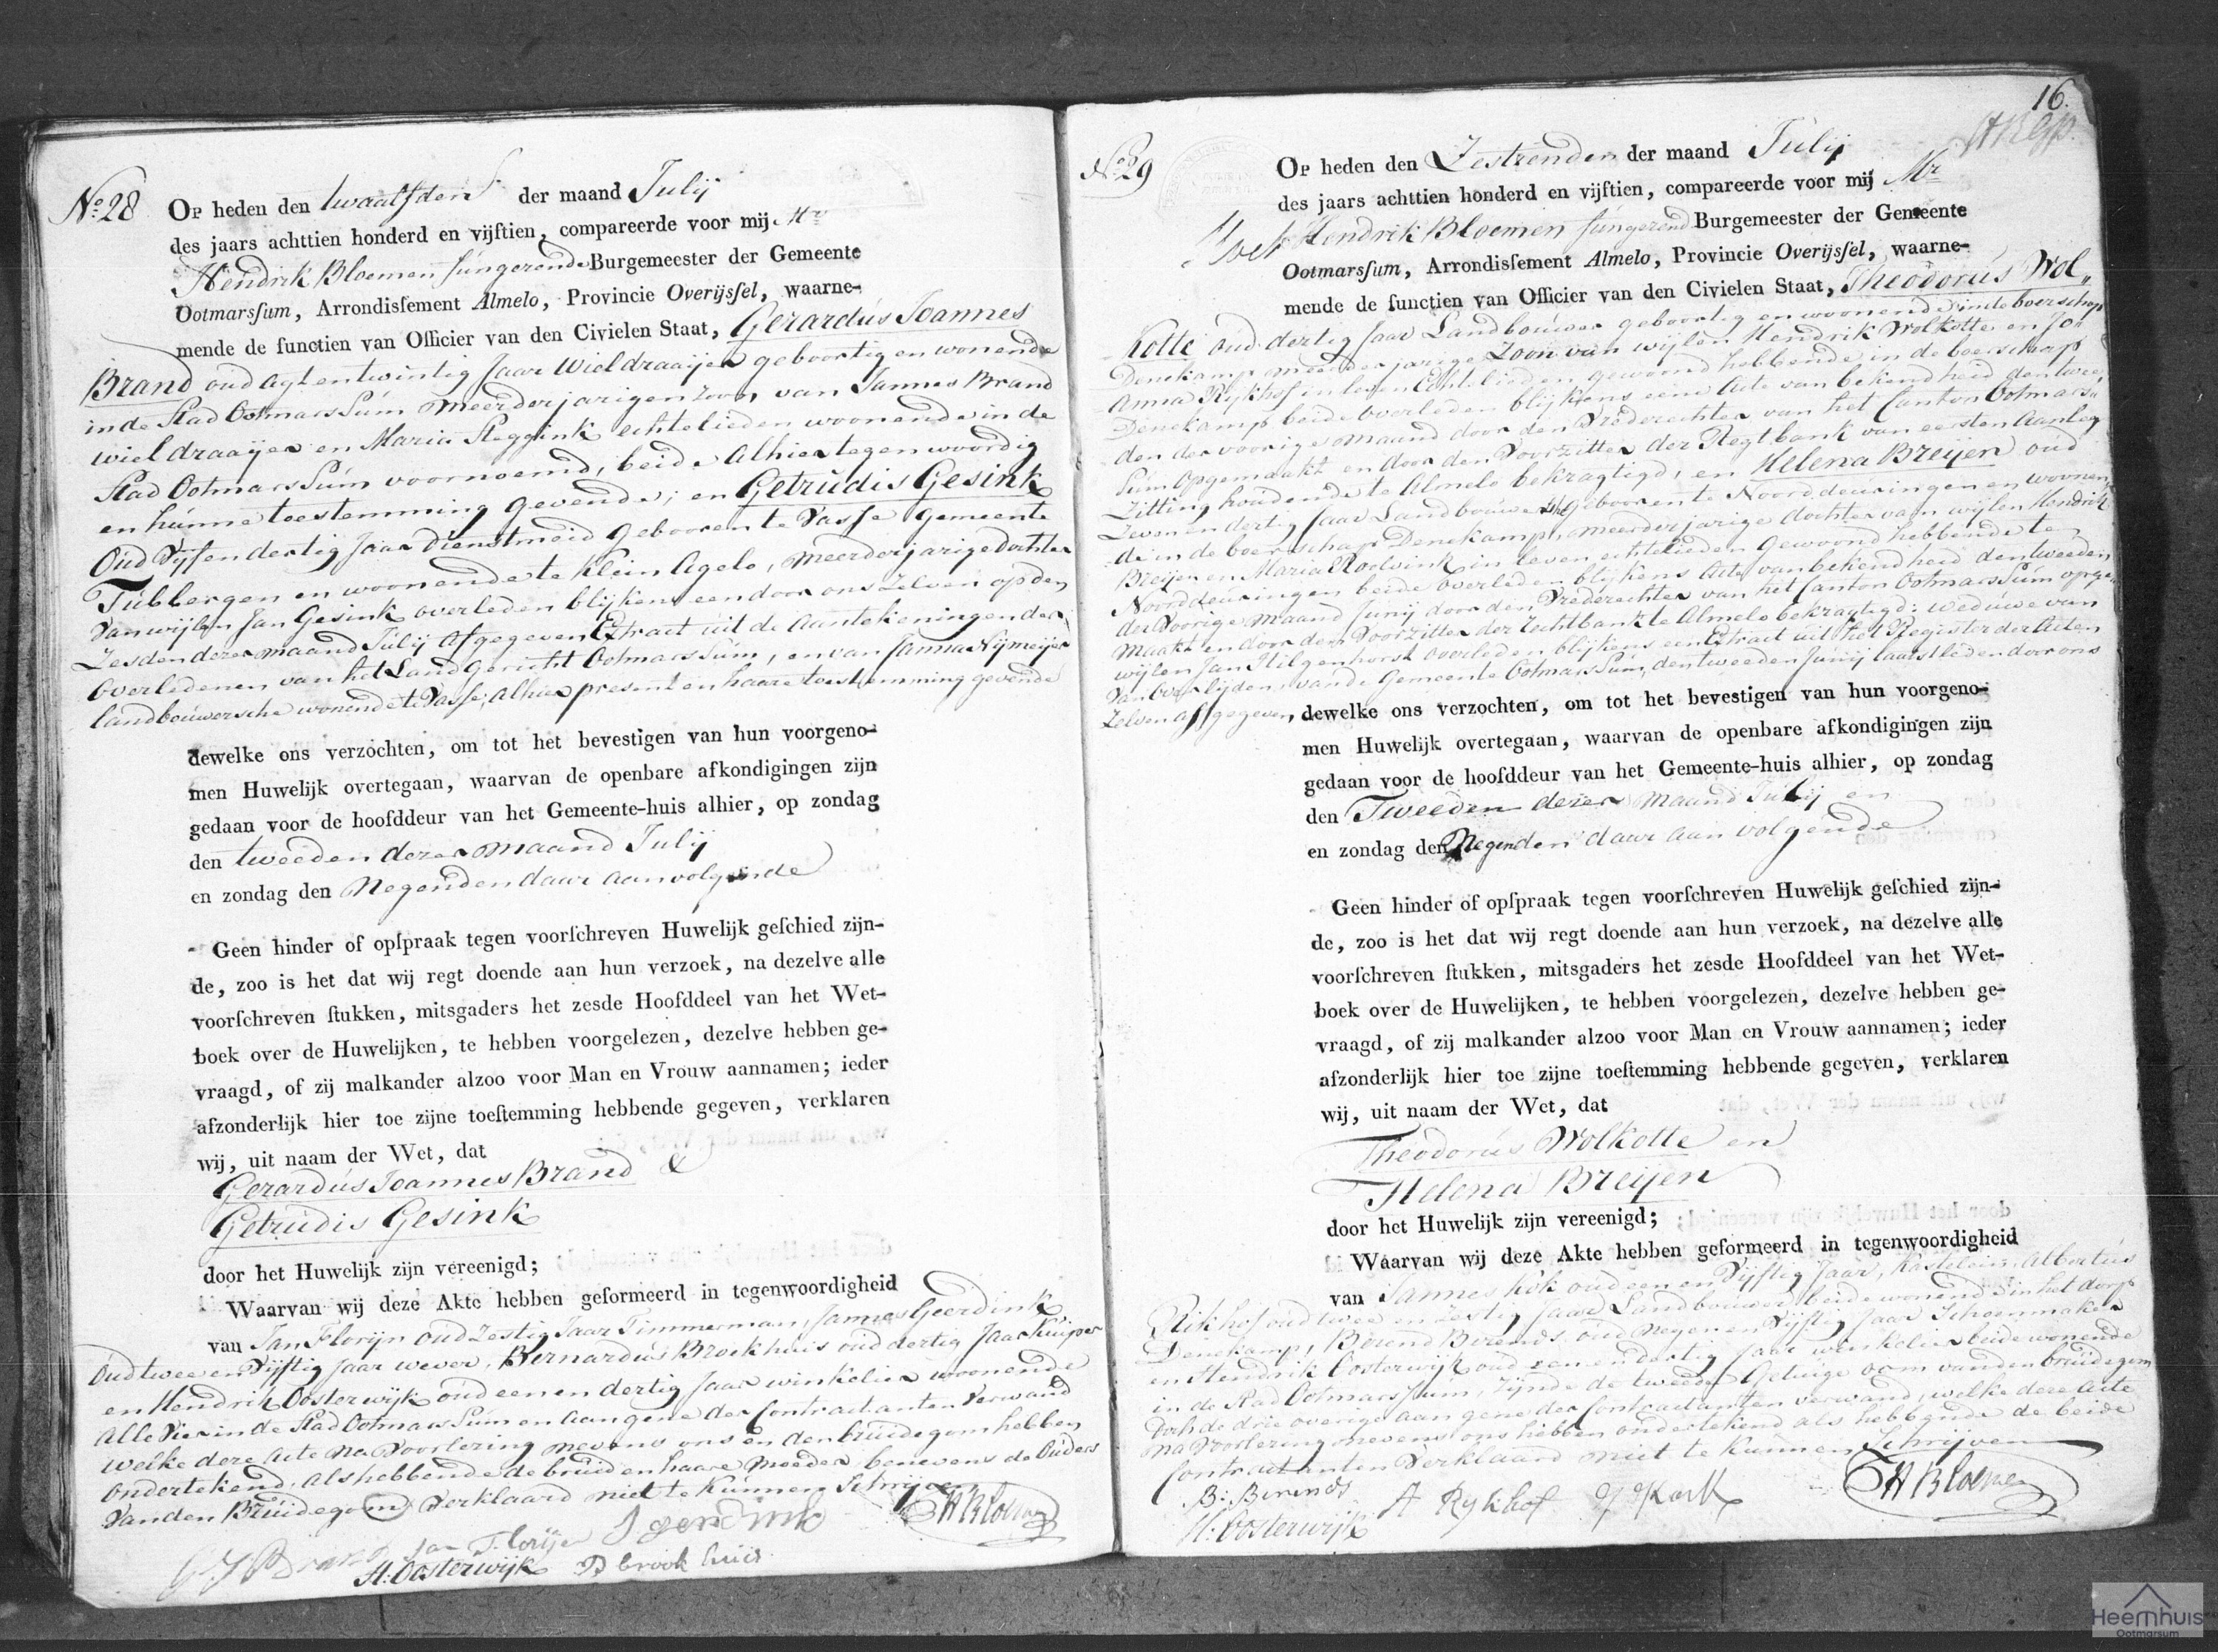 No 28
Op heden den twaalfden der maand Julij
des jaars achttien honderd en vijftien, compareerde voor mij Mr
Hendrik Bloemen fungerende Burgemeester der Gemeente
Ootmarsſum, Arrondisſement Almelo, Provincie Overijsſel, waarne-
mende de functien van Officier van den Civielen Staat, Gerardus Joannes
Brand oud agtentwintig Jaar Wieldraaijer geboortig en wonende
in de Stad Ootmarssum meerderjarigen zoon van Jannes Brand
wieldraaijer en Maria Steggink echtelieden woonende in de
Stad Ootmarssum voornoemd, beide alhier tegenwoordig
en hunne toestemming gevende; en Getrudis Gesink
oud Vyfendertig Jaar Dienstmeid Gebooren te Vasse Gemeente
Tubbergen en woonende te Klein Agelo, meerderjarige dochter
van wijlen Jan Gesink overleden blijkens een door ons zelven op den
Zesden dezer maand Julij afgegeven Extract uit de Aantekeningen der
Overledenen van het Landgericht Ootmarssum, en van Janna Nijmeijer
landbouwersche wonende te Vasse, alhier present en haare toestemming gevende
dewelke ons verzochten, om tot het bevestigen van hun voorgeno-
men Huwelijk overtegaan, waarvan de openbare afkondigingen zijn
gedaan voor de hoofddeur van het Gemeente-huis alhier, op zondag
den tweeden dezer maand Julij
en zondag den Negenden daar aanvolgende
Geen hinder of opſpraak tegen voorſchreven Huwelijk geſchied zijn-
de, zoo is het dat wij regt doende aan hun verzoek, na dezelve alle
voorſchreven ſtukken, mitsgaders het zesde Hoofddeel van het Wet-
boek over de Huwelijken, te hebben voorgelezen, dezelve hebben ge-
vraagd, of zij malkander alzoo voor Man en Vrouw aannamen; ieder
afzonderlijk hier toe zijne toeſtemming hebbende gegeven, verklaren
wij, uit naam der Wet, dat
Gerardus Joannes Brand &
Getrudis Gesink
door het Huwelijk zijn vereenigd;
Waarvan wij deze Akte hebben geformeerd in tegenwoordigheid
van Jan Florijn oud Zestig Jaar Timmerman, Jannes Geerdink
Oud twee en Vijftig Jaar wever, Bernardus Broekhuis oud dertig Jaar Kuiper
en Hendrik Oosterwijk oud een en dertig Jaar winkelier woonende
alle Vier in de Stad Ootmarssum en aan gene der Contractanten Verwand
welke deze Acte na Voorlezing nevens ons en den bruidegom hebben
ondertekend, als hebbende de bruid en haare Moeder benevens de Ouders
van den Bruidegom Verklaard niet te Kunnen Schrijven
G J Brand Jan Florijn J geerdink H Bloemen
H: Oosterwijk B brook huis
16.
No 29
Op heden den Zestienden der maand Julij
des jaars achttien honderd en vijftien, compareerde voor mij Mr
Hendrik Bloemen fungerend Burgemeester der Gemeente
Ootmarsſum, Arrondisſement Almelo, Provincie Overijsſel, waarne-
mende de functien van Officier van den Civielen Staat, Theodorus Wol„
kotte oud dertig Jaar Landbouwer geboortig en woonend in de boerschap
Denekamp meerderjarige Zoon van wijlen Hendrik Wolkotte en Jo„
anna Rykhof in leven Echtelieden gewoond hebbende in de boerschap
Denekamp beide overleden blijkens eene Acte van bekendheid den twee„
den der voorige maand door den Vrederechter van het Canton Ootmars„
sum opgemaakt en door den Voorzitter der Regtbank van eersten Aanleg
Zitting houdende te Almelo bekragtigd, en Helena Breijen oud
Zeven en dertig Jaar Landbouwersche Gebooren te Noorddeuringen en woonen„
de in de boerschap Denekamp, meerderjarige dochter van wijlen Hendrik
Breijen en Maria Roelvink in leven echtelieden Gewoond hebbende te
Noorddeuringen beide overleden blijkens Acte van bekendheid den tweeden
der Voorige maand Junij door den Vrederechter van het Canton Ootmarssum opge„
maakt en door den Voorzitter der Rechtbank te Almelo bekragtigd: Weduwe van
wijlen Jan Hilgenhorst overleden blijkens een Extract uit het Register der Acten
van overlijden, van de Gemeente Ootmarssum, den tweeden Junij laatstleden door ons
Zelven afgegeven dewelke ons verzochten, om tot het bevestigen van hun voorgeno-
men Huwelijk overtegaan, waarvan de openbare afkondigingen zijn
gedaan voor de hoofddeur van het Gemeente-huis alhier, op zondag
den Tweeden dezer maand Julij en
en zondag den Negenden daar aan volgende
Geen hinder of opſpraak tegen voorſchreven Huwelijk geſchied zijn-
de, zoo is het dat wij regt doende aan hun verzoek, na dezelve alle
voorſchreven ſtukken, mitsgaders het zesde Hoofddeel van het Wet-
boek over de Huwelijken, te hebben voorgelezen, dezelve hebben ge-
vraagd, of zij malkander alzoo voor Man en Vrouw aannamen; ieder
afzonderlijk hier toe zijne toeſtemming hebbende gegeven, verklaren
wij, uit naam der Wet, dat
Theodorus Wolkotte en
Helena Breijen
door het Huwelijk zijn vereenigd;
Waarvan wij deze Akte hebben geformeerd in tegenwoordigheid
van Jannes Kok oud een en Vijftig Jaar, Kastelein, Albertus
Rikhof oud twee en Zestig Jaar Landbouwer beide wonend in het dorp
Denekamp, Berend Berends oud Negen en Vijftig Jaar Schoenmaker
en Hendrik Oosterwijk oud een en dertig Jaar winkelier beide wonende
in de Stad Ootmarssum, Zijnde de tweede Getuige oom van den bruidegom
doch de drie overige aan gene der Contractanten verwand, welke deze Acte
na Voorlezing nevens ons hebben ondertekend als hebbende de beide
Contractanten Verklaard niet te Kunnen Schrijven
B: Berends A Rykhof H Bloemen
H: Oosterwijk
Heemhuis
Ootmarsum